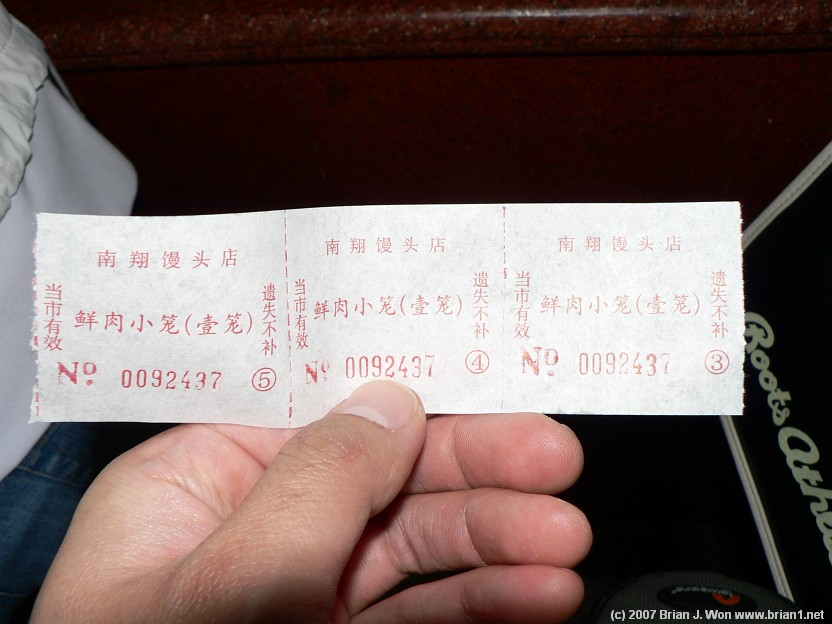 南翔馒头店
当市有效
鲜肉小笼(壹笼)
遗失不补
Nº 0092437 ⑤
南翔馒头店
当市有效
鲜肉小笼(壹笼)
遗失不补
Nº 0092437 ④
南翔馒头店
当市有效
鲜肉小笼(壹笼)
遗失不补
Nº 0092437 ③
Roots Athle
(c) 2007 Brian J. Won www.brian1.net